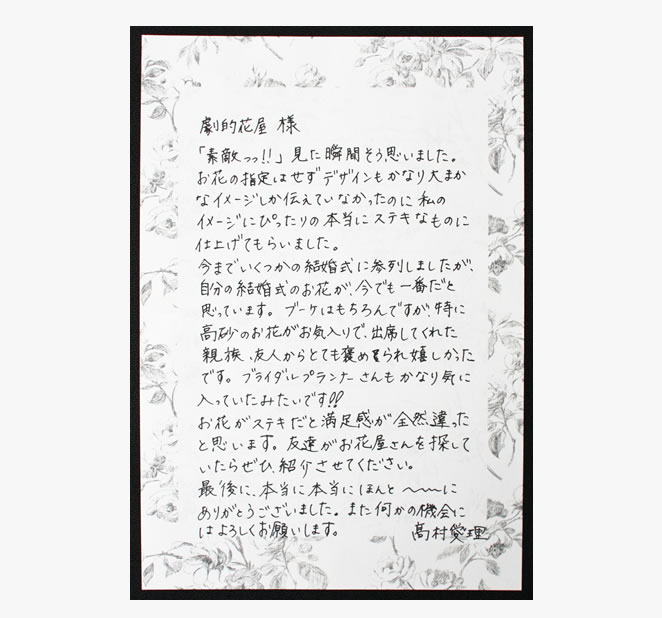 劇的花屋 様
「素敵っっ!!」見た瞬間そう思いました。
お花の指定はせずデザインもかなり大まか
なイメージしか伝えていなかったのに私の
イメージにぴったりの本当にステキなものに
仕上げてもらいました。
今までいくつかの結婚式に参列しましたが、
自分の結婚式のお花が、今でも一番だと
思っています。ブーケはもちろんですが、特に
高砂のお花がお気入りで、出席してくれた
親族、友人からとても褒められ嬉しかった
です。ブライダルプランナーさんもかなり気に
入っていたみたいです!!
お花がステキだと満足感が全然違った
と思います。友達がお花屋さんを探して
いたらぜひ、紹介させてください。
最後に、本当に本当にほんと〜〜に
ありがとうございました。また何かの機会に
はよろしくお願いします。 髙村愛理